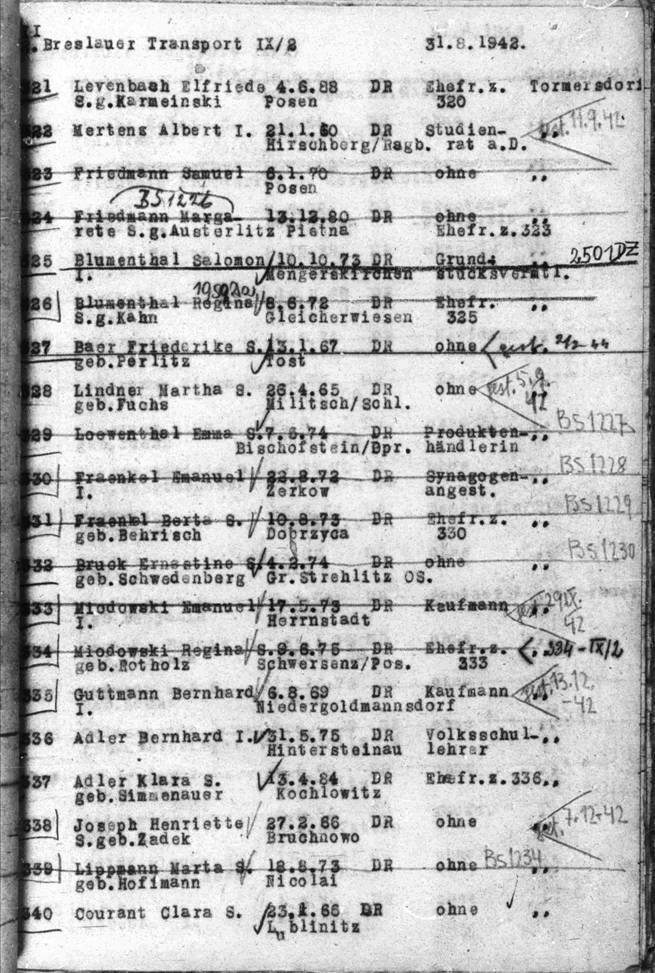 Breslauer Transport IX/2 31.8.1942.
321 Levenbach Elfriede 4.6.88 DR Ehefr.z. Tormersdorf
S.g.Karmeinski Posen 320
322 Mertens Albert I. 21.1.60 DR Studien- ,, gest. 11.9.42
Hirschberg/Rsgb. rat a.D.
323 Friedmann Samuel 6.1.70 DR ohne ,,
Posen
BS 1226
324 Friedmann Marga- 13.12.80 DR ohne ,,
rete S.g.Austerlitz Pietna Ehefr.z.323
325 Blumenthal Salomon 10.10.73 DR Grund- 2501 DZ
I. Mengerskirchen stücksvermtl.
326 Blumenthal Regina 8.6.72 DR Ehefr. ,,
S.g.Kahn Gleicherwiesen 325
327 Baer Friederike S. 13.1.67 DR ohne gest.
geb.Perlitz Tost
328 Lindner Martha S. 26.4.65 DR ohne ,, gest. 5.9.
geb.Fuchs Militsch/Schl. 42
329 Loewenthal Emma S. 7.6.74 DR Produkten- ,, BS 1227
Bischofstein/Opr. händlerin
330 Fraenkel Emanuel 22.8.72 DR Synagogen- ,, BS 1228
I. Zerkow angest.
331 Fraenkel Berta S. 10.8.73 DR Ehefr.z. ,, BS 1229
geb.Behrisch Dobrzyca 330
332 Bruck Ernestine S. 4.2.74 DR ohne ,, BS 1230
geb.Schwedenberg Gr.Strehlitz OS.
333 Miodowski Emanuel 17.5.73 DR Kaufmann ,, gest. 29.IX.
I. Herrnstadt 42
334 Miodowski Regina S. 9.6.75 DR Ehefr.z. 334-IX/2
geb.Rotholz Schwersenz/Pos. 333
335 Guttmann Bernhard 6.8.69 DR Kaufmann ,, gest. 13.12.
I. Niedergoldmannsdorf -42
336 Adler Bernhard I. 31.5.75 DR Volksschul- ,,
Hintersteinau lehrer
337 Adler Klara S. 13.4.84 DR Ehefr.z.336 ,,
geb.Simmenauer Kochlowitz
338 Joseph Henriette 27.2.66 DR ohne ,, gest. 7.12.42
S.geb.Zadek Bruchnowo
339 Lippmann Marta S. 18.8.73 DR ohne BS 1234 ,,
geb.Hoffmann Nicolai
340 Courant Clara S. 23.1.66 DR ohne ,,
Lublinitz